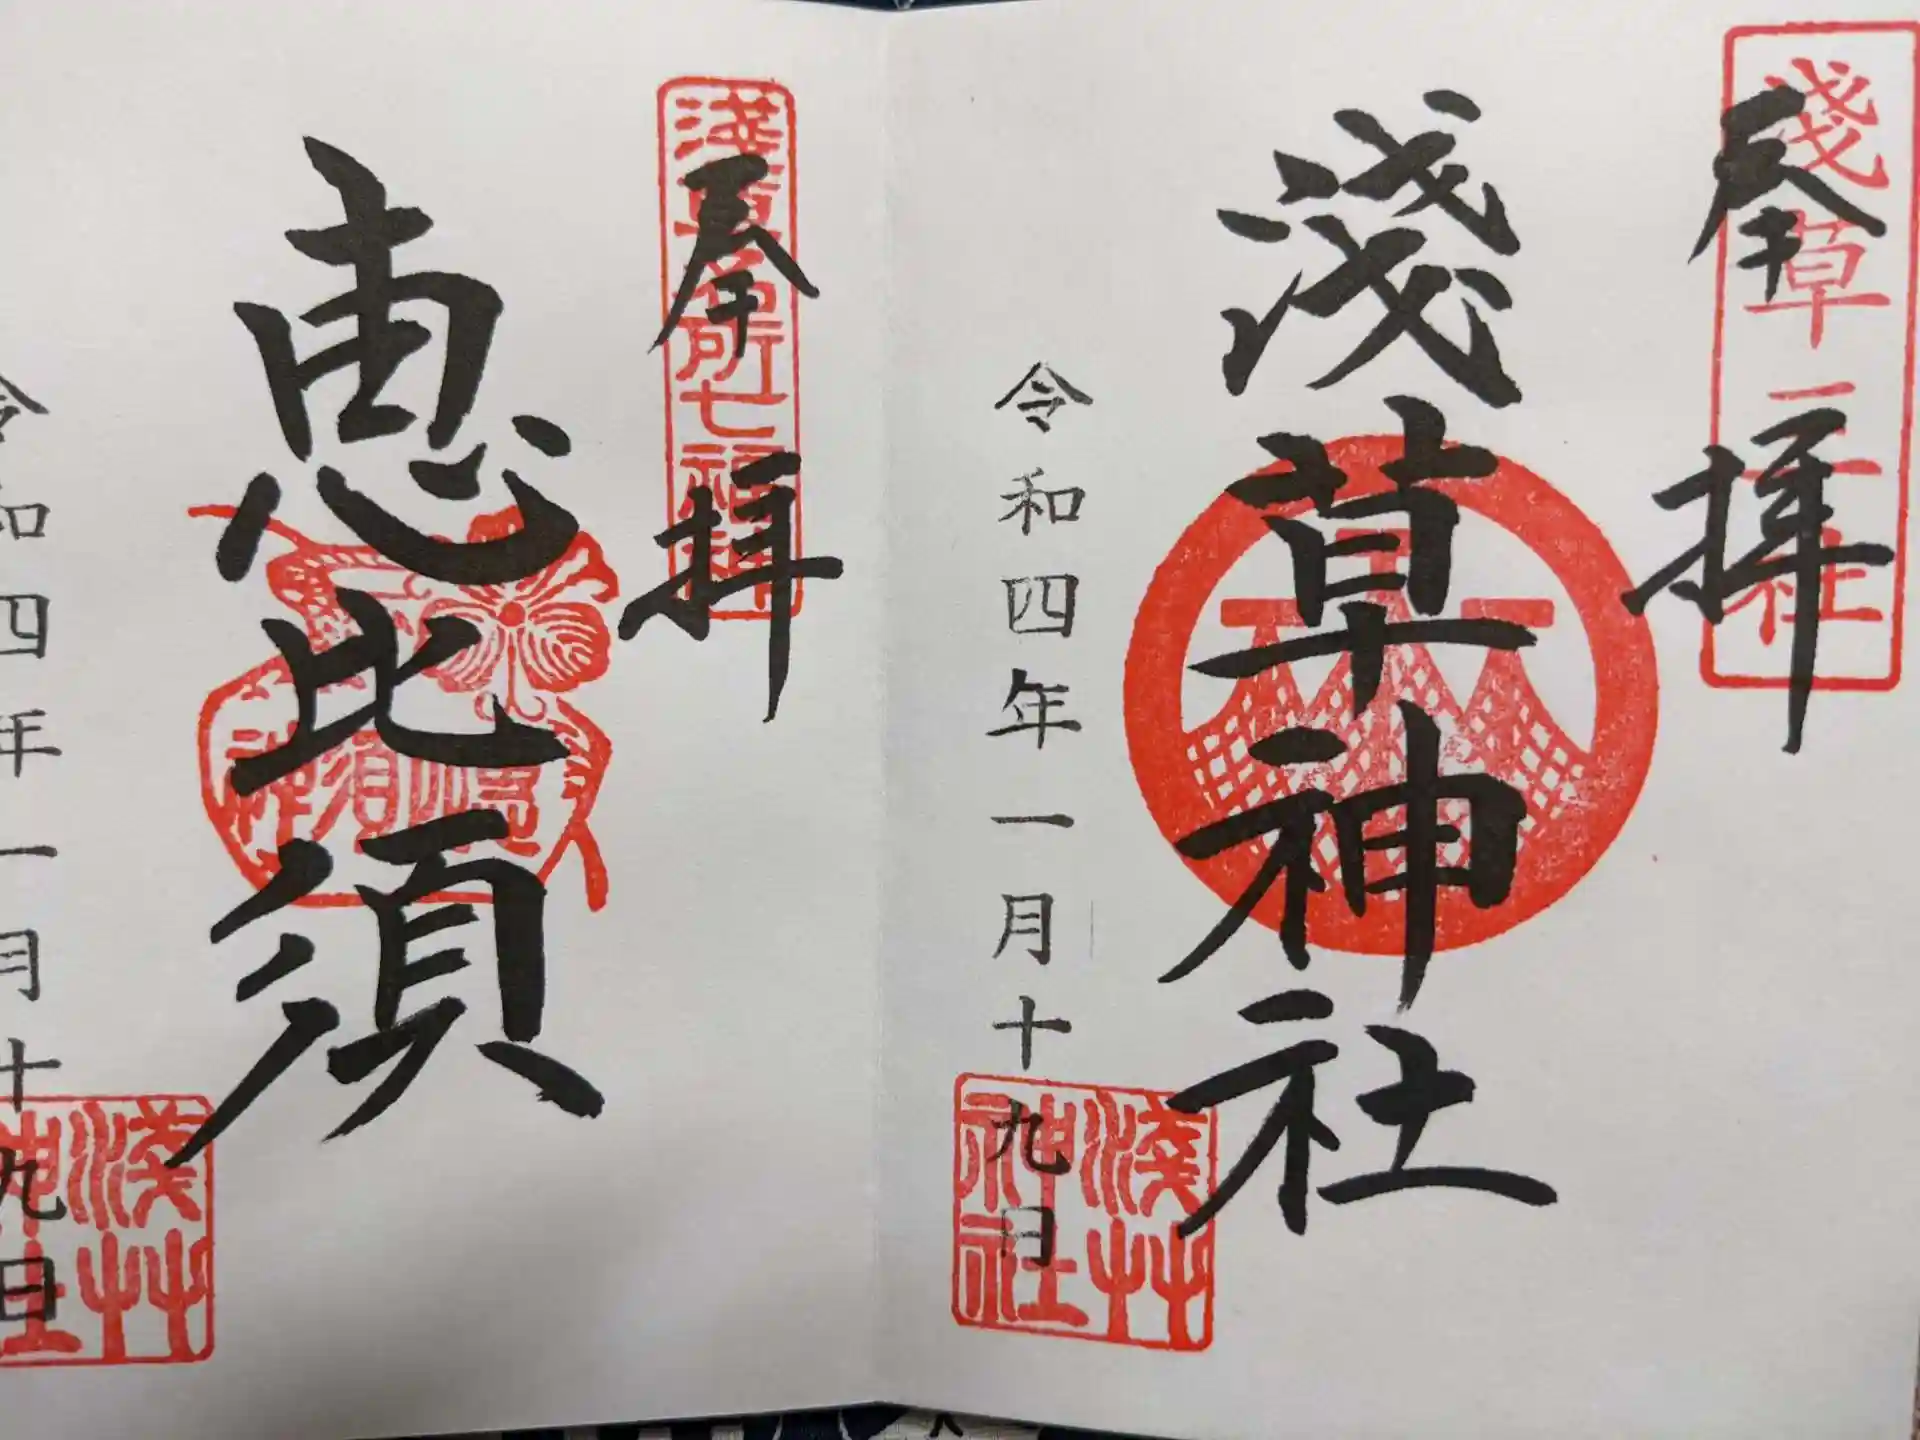 奉拝
淺草三社
淺草神社
令和四年一月十九日
淺草神社
奉拝
淺草名所七福神
恵比須
恵比須神
令和四年一月十九日
淺草神社